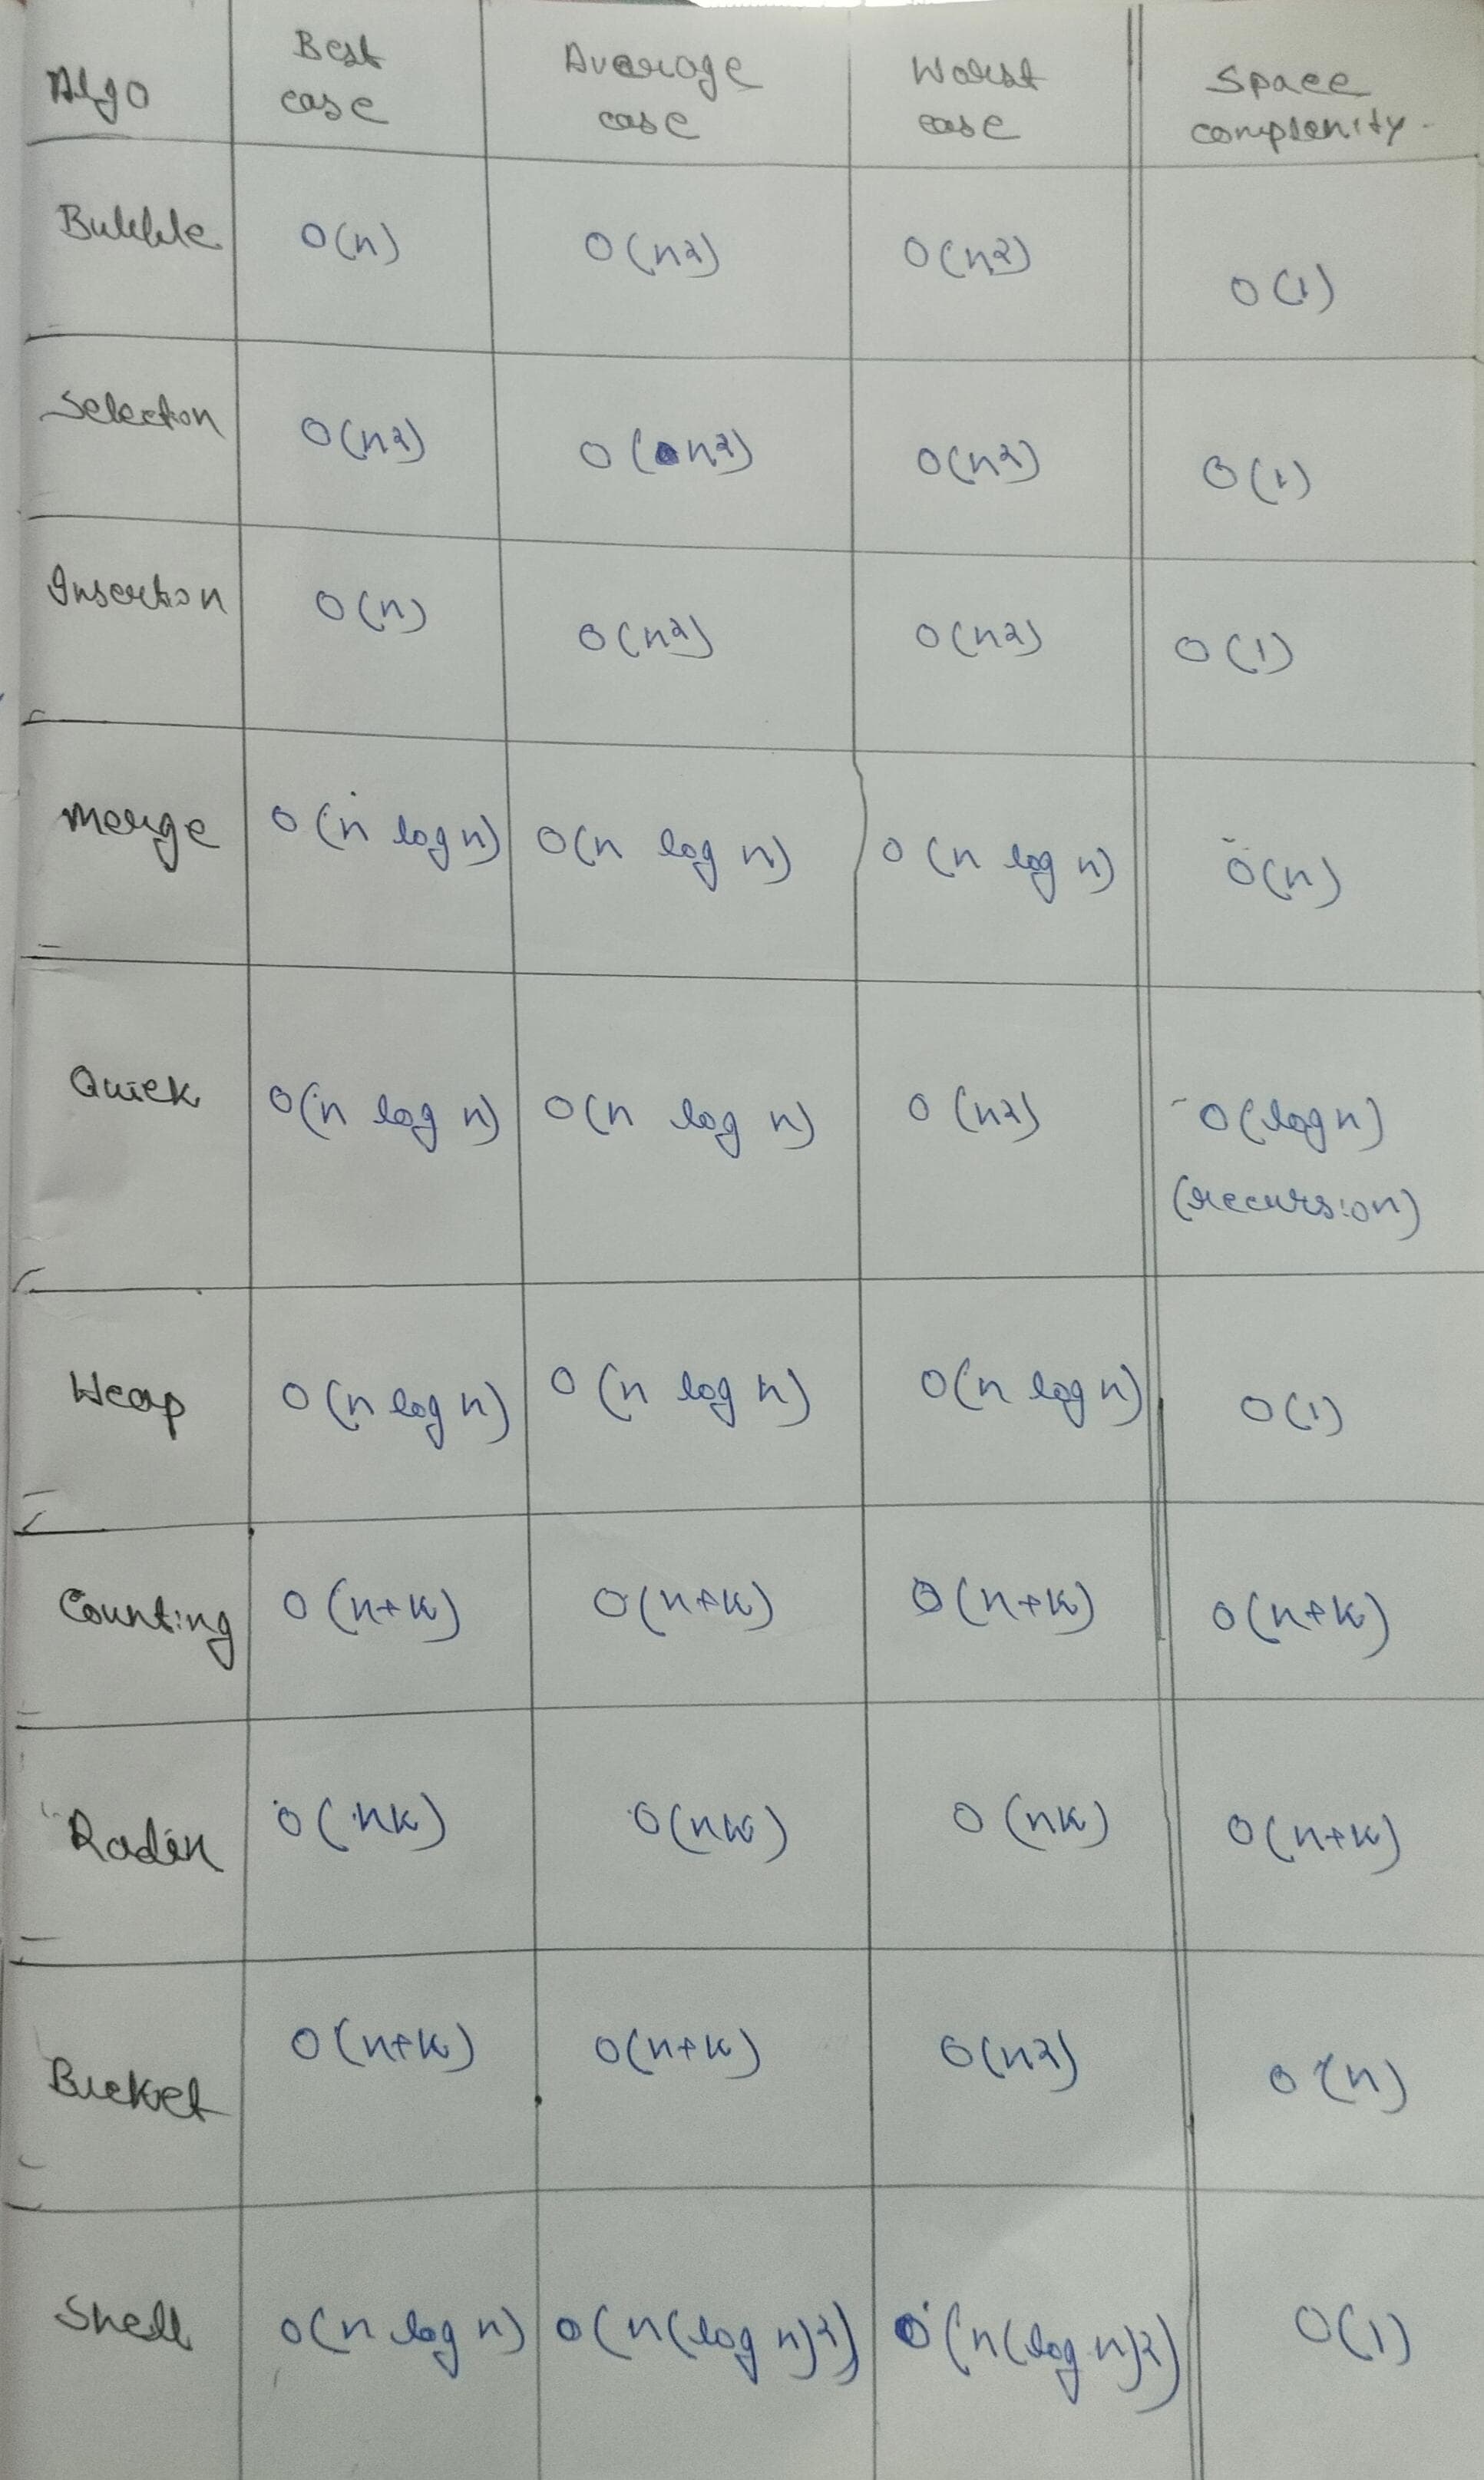 Algo Best case Average case Worst case Space complexity
Bubble O(n) O(n2) O(n2) O(1)
Selection O(n2) O(n2) O(n2) O(1)
Insertion O(n) O(n2) O(n2) O(1)
Merge O(n log n) O(n log n) O(n log n) O(n)
Quick O(n log n) O(n log n) O(n2) O(log n) (recursion)
Heap O(n log n) O(n log n) O(n log n) O(1)
Counting O(n+k) O(n+k) O(n+k) O(n+k)
Radix O(nk) O(nk) O(nk) O(n+k)
Bucket O(n+k) O(n+k) O(n2) O(n)
Shell O(n log n) O(n(log n)2) O(n(log n)2) O(1)